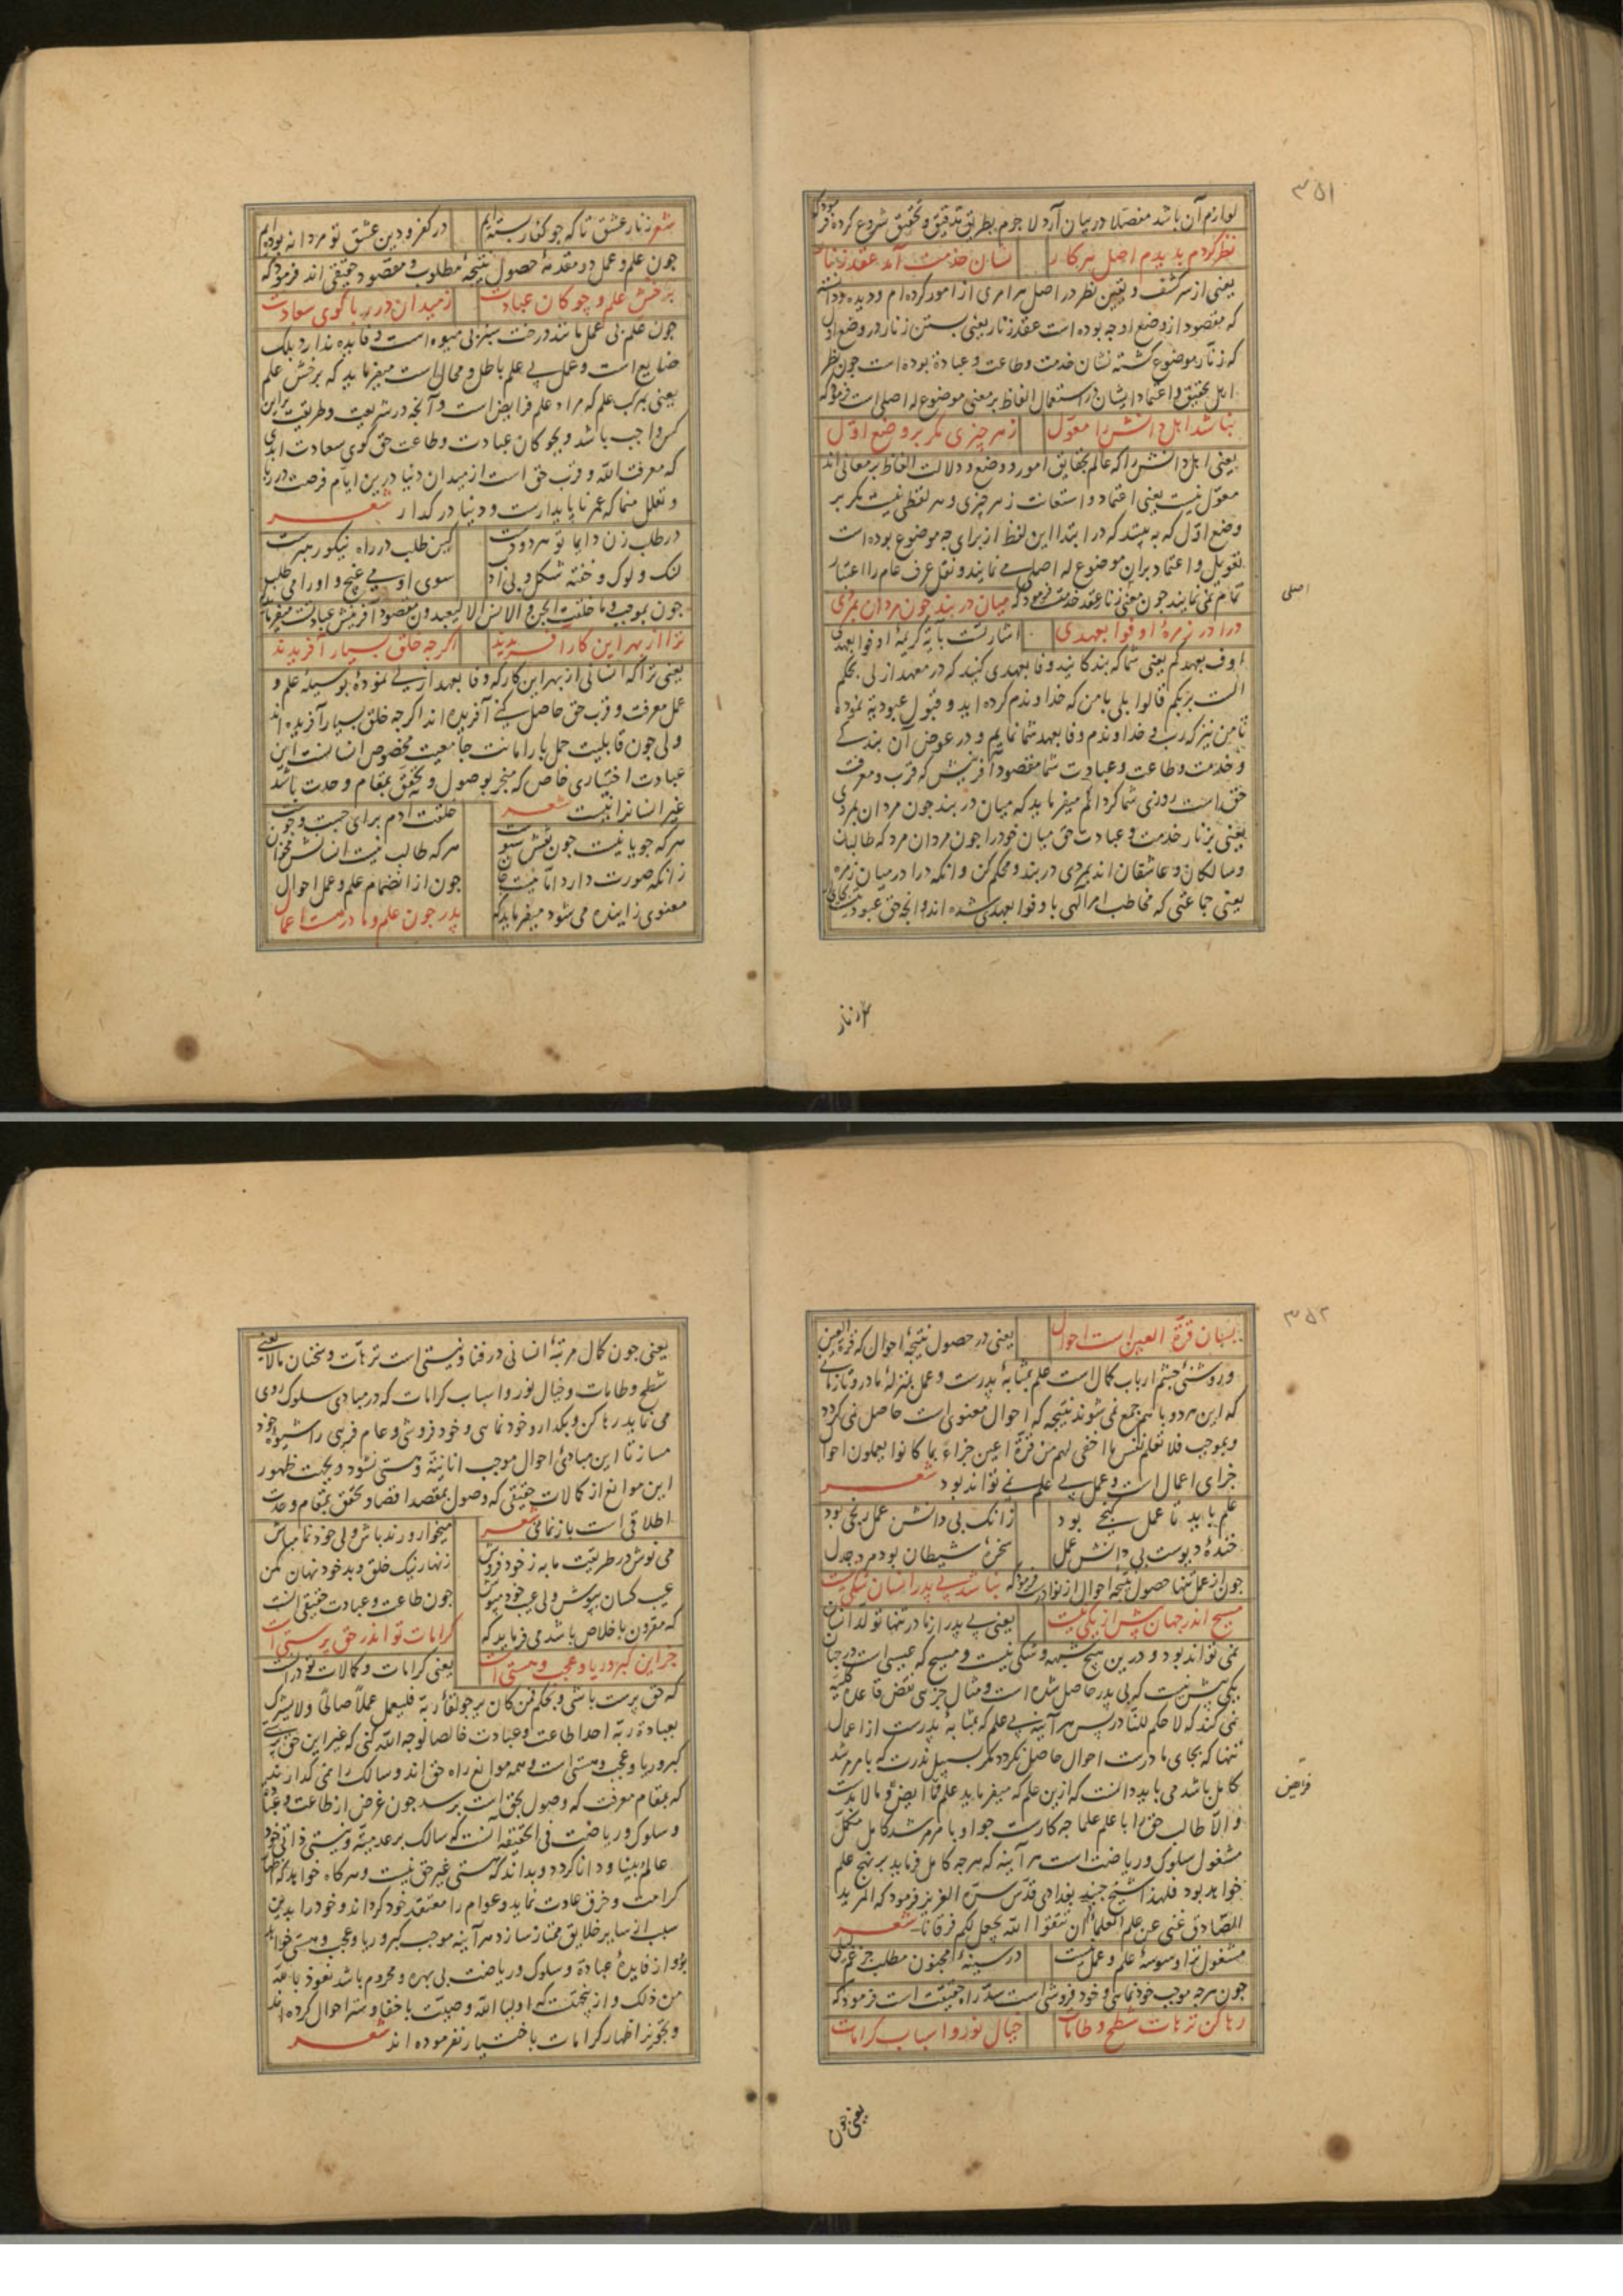 ۳۵۱
لوازم آن باشد مفصلا در بیان آرد لا جرم بطریق تدقیق و تحقیق شروع کرده فرمود که
نظر کردم بدیدم اصل هر کار نشان خدمت آمد عقد زنار
یعنی از سر کشف و یقین نظر در اصل هر امری از امور کرده‌ام و دیده و دانسته
که مقصود از وضع او چه بوده است عقد زنار یعنی بستن زنار در وضع اول
که زنار موضوع گشته نشان خدمت و طاعت و عبادة بوده است چون نظر
اهل تحقیق و اعتماد ایشان در استعمال الفاظ بر معنی موضوع له اصلی است فرمود که
نباشد اهل دانش را معول ز هر چیزی مگر بر وضع اول
یعنی اهل دانش را که عالم بحقایق امور و وضع و دلالت الفاظ بر معانی اند
معول نیست یعنی اعتماد و استعانت ز هر چیزی و هر لفظی نیست مگر بر
وضع اول که به بینند که در ابتدا این لفظ از برای چه موضوع بوده است
تعویل و اعتماد بران موضوع له اصلی می نمایند و نقل عرف عام را اعتبار
تمام نمی نمایند چون معنی زنار عقد خدمت فرمود که میان در بند چون مردان بمردی
اصلی
درا در زمرهٔ اوفوا بعهدی اشارتست بآیهٔ کریمهٔ اوفوا بعهدی
اوف بعهدکم یعنی شما که بندگانید وفا بعهدی کنید که در معهد ازلی بحکم
الست بربکم قالوا بلی با من که خداوندم کرده اید و قبول عبودیة نموده
تا من نیز که رب و خداوندم وفا بعهد شما نمایم و در عوض آن بندگی
و خدمت و طاعت و عبادت شما مقصود آفرینش که قرب و معرفت
حق است روزی شما گردانم میفرماید که میان در بند چون مردان بمردی
یعنی بزنار خدمت و عبادت حق میان خود را چون مردان مرد که طالبان
و سالکان و عاشقان اند بمردی در بند و محکم کن و انکه درا در میان زمره
یعنی جماعتی که مخاطب امر آلهی باوفوا بعهدی شده اند و انچه حق عبودیت
شعر زنار عشق تا که چو کفار بسته‌ایم در کفر و دین عشق تو مردانه بوده‌ایم
چون علم و عمل دو مقدمهٔ حصول نتیجهٔ مطلوب و مقصود حقیقی اند فرمود که
برخش علم و چوگان عبادت ز میدان در ربا گوی سعادت
چون علم بی عمل مانند درخت سبز بی میوه است و فایده ندارد بلک
ضایع است و عمل بی علم باطل و محال است میفرماید که برخش علم
یعنی بمرکب علم که مراد علم فرایض است و آنچه در شریعت و طریقت براین
کس واجب باشد و بچوگان عبادت و طاعت حق گوی سعادت ابدی
که معرفت الله و قرب حق است از میدان دنیا درین ایام فرصت در ربا
و تعلل منما که عمر ناپایدارست و دنیا در گذار شعر
در طلب زن دایما تو هر دو دست کین طلب در راه نیکو رهبرست
لنگ و لوک و خفته شکل و بی ادب سوی او می غیج و او را می طلب
چون بموجب و ما خلقت الجن و الانس الا لیعبدون مقصود آفرینش عبادتست میفرماید
ترا از بهر این کار آفریدند اگرچه خلق بسیار آفریدند
یعنی ترا که انسانی از بهر این کار که وفا بعهد ازلی نمودهٔ بوسیلهٔ علم و
عمل معرفت و قرب حق حاصل کنی آفریده اند اگرچه خلق بسیار آفریده اند
ولی چون قابلیت حمل بار امانت جامعیت مخصوص انسانست این
عبادت اختیاری خاص که منجر بوصول و تحقق بمقام وحدت باشد
غیر انسان را نیست شعر خلقت آدم برای جست و جوست
هر که جویا نیست چون نقش سبوست هر که طالب نیست انسانش مخوان
زانکه صورت دارد اما نیست جان چون از انضمام علم و عمل احوال
معنوی زاینده می شود میفرماید که پدر چون علم و مادر هست اعمال
۲ زنار
۳۵۲
بسان قرة العین است احوال یعنی در حصول نتیجهٔ احوال که قرة العین
و روشنی چشم ارباب کمال است علم بمثابهٔ پدرست و عمل بمنزلهٔ مادر و تا زمانی
که این هر دو با هم جمع نمی شوند نتیجه که احوال معنوی است حاصل نمی گردد
و بموجب فلا تعلم نفس ما اخفی لهم من قرة اعین جزاءً بما کانوا یعملون احوال
جزای اعمال است و عمل بی علم نمی تواند بود شعر
علم باید تا عمل گنجی بود زانک بی دانش عمل رنجی بود
خندهٔ دیوست بی دانش عمل سخرهٔ شیطان بود مرد جدل
چون از عمل تنها حصول نتیجه احوال از نوادرست فرمود که نباشد بی پدر انسان شکی نیست
مسیح اندر جهان بیش از یکی نیست یعنی بی پدر از مادر تنها تولد انسان
نمی تواند بود و درین هیچ شبهه و شکی نیست و مسیح که عیسی است در جهان
یکی بیش نیست که بی پدر حاصل شده است و مثال جزی نقض قاعده کلیه
نمی کند که لا حکم للنادر پس هر آینه بی علم که بمثابهٔ پدرست از اعمال
تنها که بجای مادرست احوال حاصل نگردد مگر بسبیل ندرت که بامر مرشد
کامل باشد می باید دانست که ازین علم که میفرماید علم فرایض و ما لا بدست
فرایض
و الا طالب حق را با علم علما چه کارست چو او بامر مرشد کامل مکمل
مشغول سلوک و ریاضت است هر آینه که هرچه کامل فرماید بر نهج علم
خواهد بود فلهذا شیخ جنید بغدادی قدس سره العزیز فرمود که المرید
الصادق غنی عن علم العلماء ان تتقوا الله یجعل لکم فرقانا شعر
مشغول ترا وسوسهٔ علم و عمل نیست در سینهٔ مجنون مطلب جز غم لیلی
چون هرچه موجب خودنمایی و خودفروشی است سد راه حقیقت است فرمود که
رها کن ترهات شطح و طامات خیال نور و اسباب کرامات
یعنی چون
یعنی چون کمال مرتبهٔ انسانی در فنا و نیستی است ترهات و سخنان ما لا یعنی
شطح و طامات و خیال نور و اسباب کرامات که در مبادی سلوک روی
می نماید رها کن و بگذار و خودنمایی و خودفروشی و عام فریبی را شیوهٔ خود
مساز تا این مبادی احوال موجب انانیة و هستی نشود و بجهت ظهور
این موانع از کمالات حقیقی که وصول بمقصد اقصا و تحقق بمقام وحدت
اطلاقی است باز نمانی شعر میخوار و رند باش ولی خودنما مباش
می نوش در طریقت ما به ز خودفروش زنهار نیک خلق و بد خود نهان مکن
عیب کسان بپوش ولی عیب خود مپوش چون طاعت و عبادت حقیقی آنست
که مقرون باخلاص باشد می فرماید که کرامات تو اندر حق پرستی است
جز این کبر و ریا و عجب و هستی است یعنی کرامات و کمالات تو در آنست
که حق پرست باشی و بحکم فمن کان یرجو لقاء ربه فلیعمل عملاً صالحاً و لا یشرک
بعبادة ربه احدا طاعت و عبادت خالصا لوجه الله کنی که غیر این حق پرستی
کبر و ریا و عجب و هستی است و همه موانع راه حق اند و سالک را نمی گذارند
که بمقام معرفت که وصول بحق است برسد چون غرض از طاعت و عبادت
و سلوک و ریاضت فی الحقیقه آنست که سالک بر عدمیة و نیستی ذاتی خود
عالم و بینا و دانا گردد و بداند که هستی غیر حق نیست و هرگاه خواهد که اظهار
کرامت و خرق عادت نماید و عوام را معتقد خود گرداند و خود را بدین
سبب از سایر خلایق ممتاز سازد هر آینه موجب کبر و ریا و عجب و هستی خواهد
بود و از فایدهٔ عبادة و سلوک و ریاضت بی بهره و محروم باشد نعوذ بالله
من ذلک و از اینجهتست که اولیا الله وصیت باخفا و ستر احوال کرده اند
و تجویز اظهار کرامات باختیار نفرموده اند شعر